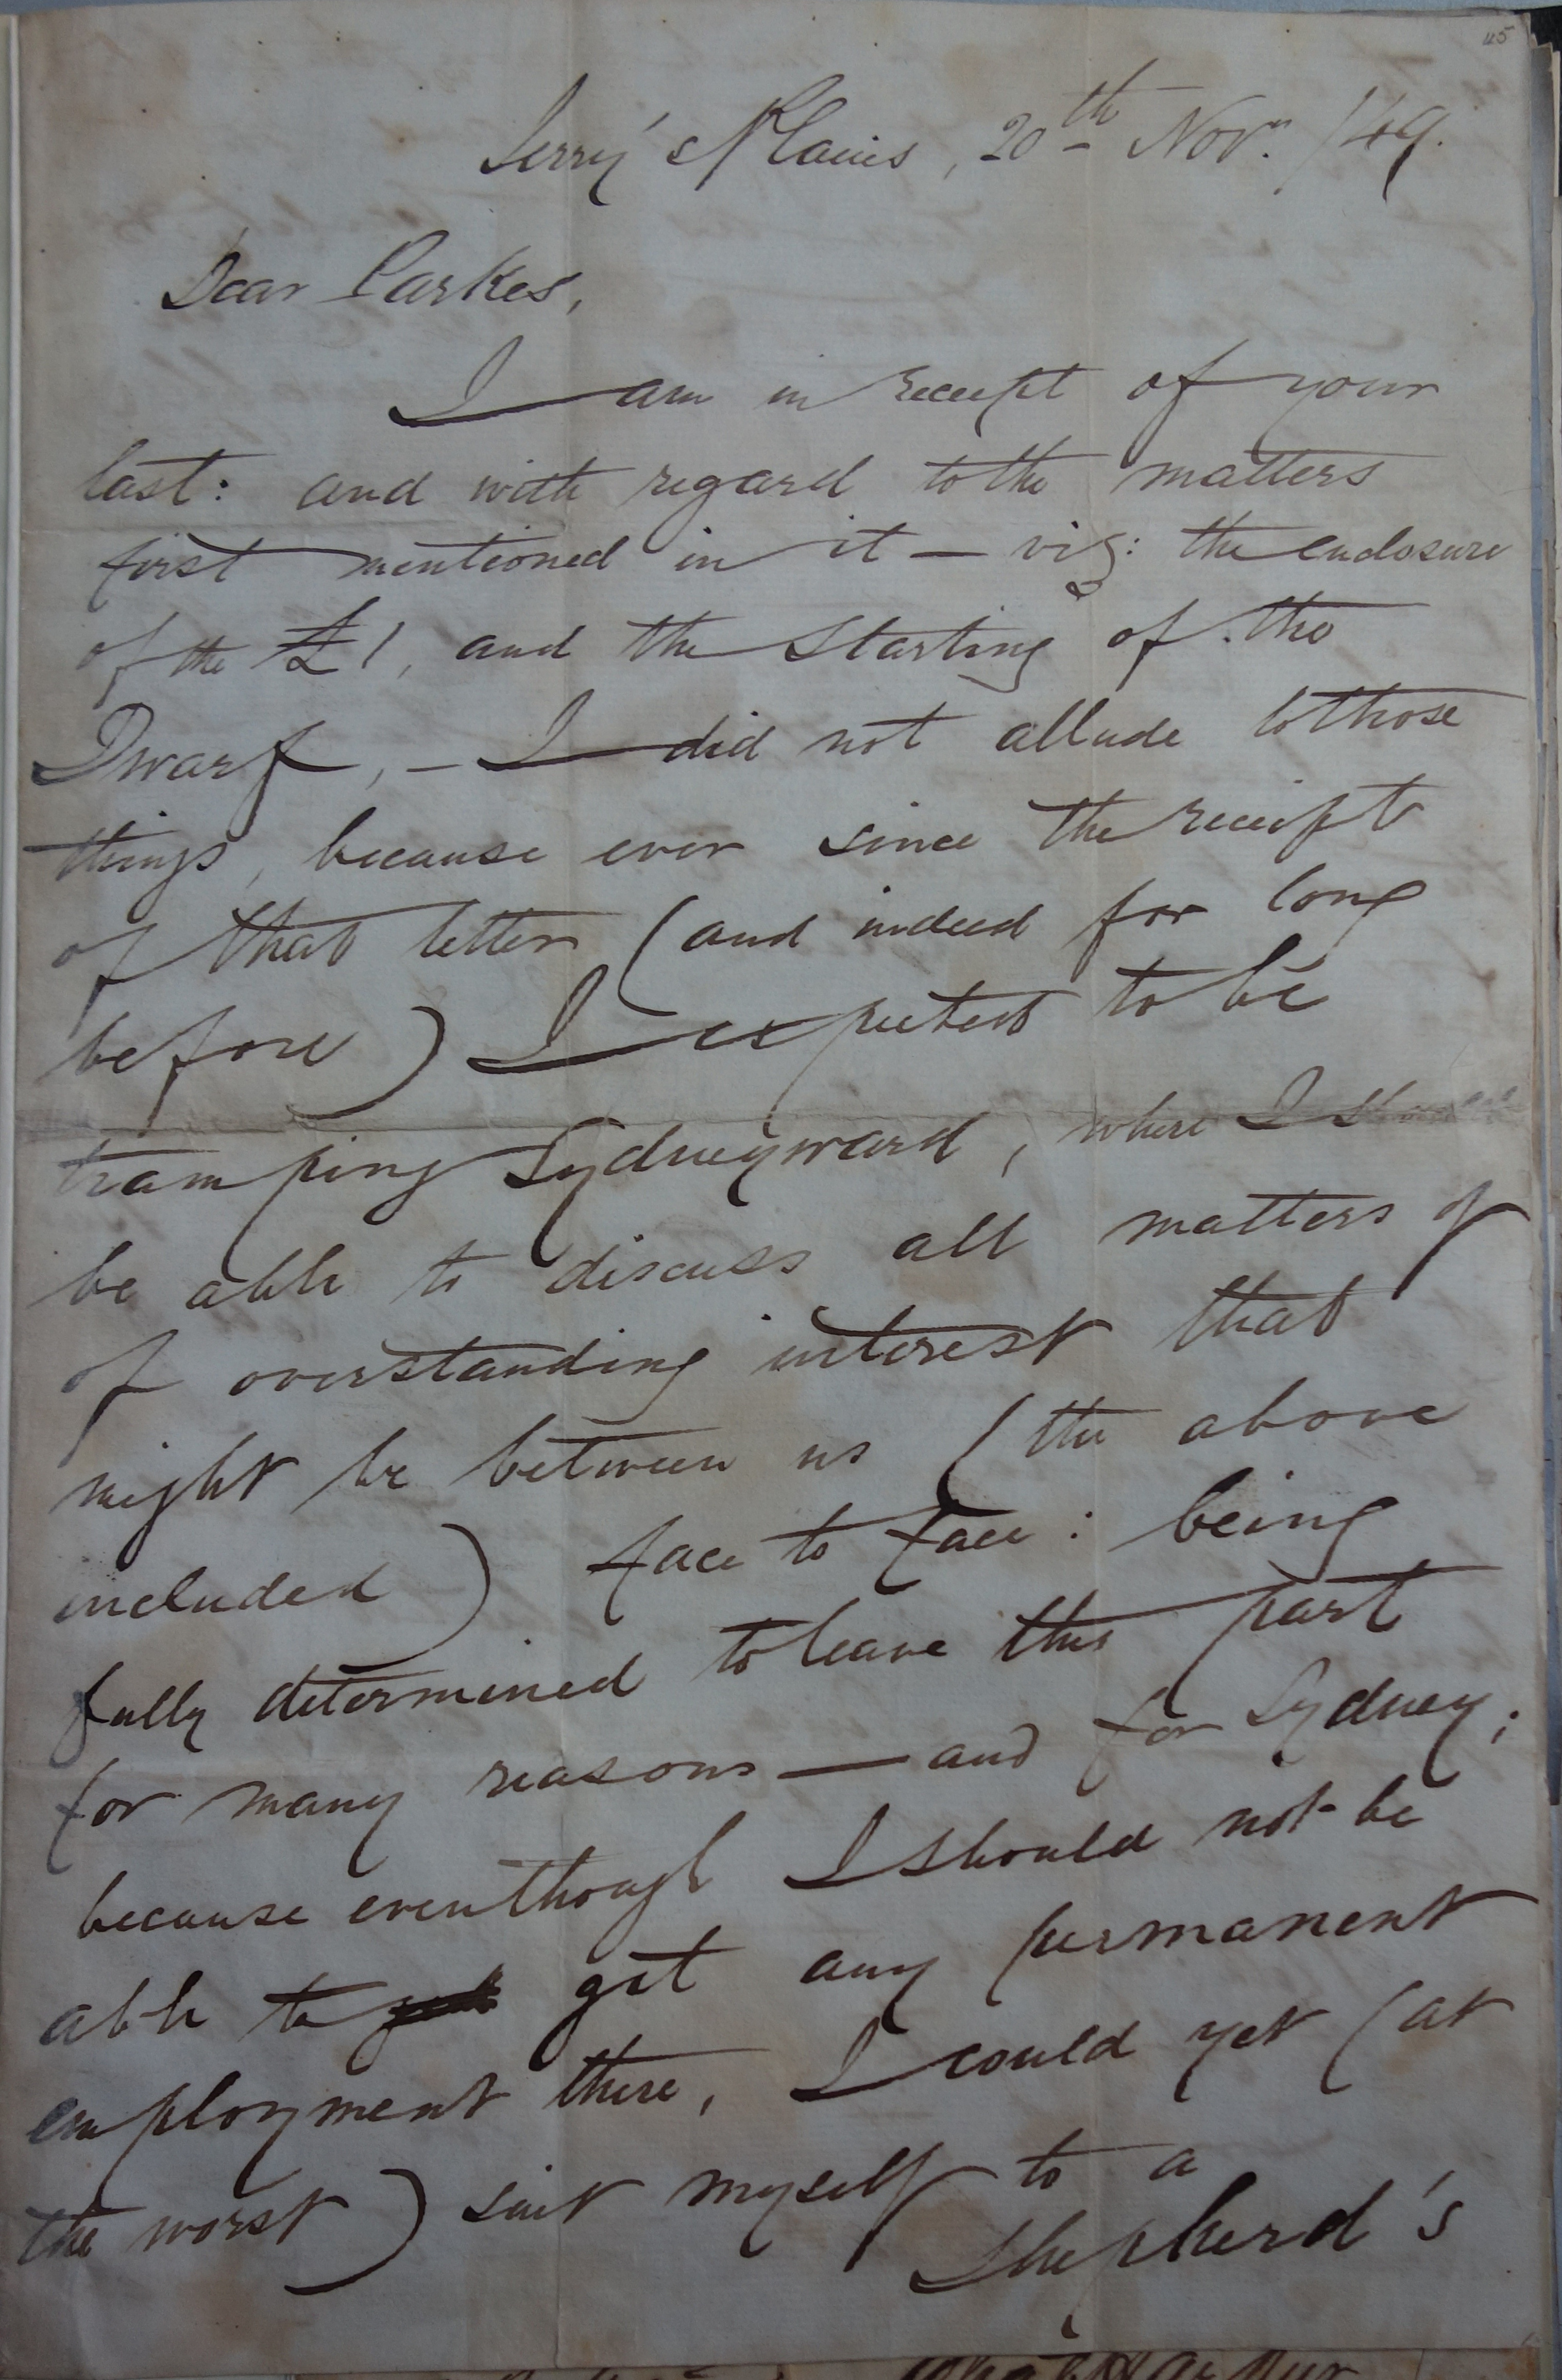 45
Jerry's Plains, 20th Novr. /49.
Dear Parkes,
I am in receipt of your
last: and with regard to the matters
first mentioned in it — viz: the enclosure
of the £1, and the starting of the
Dwarf, — I did not allude to those
things, because ever since the receipt
of that letter (and indeed for long
before) I expected to be
tramping Sydneyward, where I should
be able to discuss all matters of
of overstanding interest that
might be between us (the above
included) face to face: being
fully determined to leave this part
for many reasons — and for Sydney;
because even though I should not be
able to get any permanent
employment there, I could yet (at
the worst) suit myself to a
Shepherd's